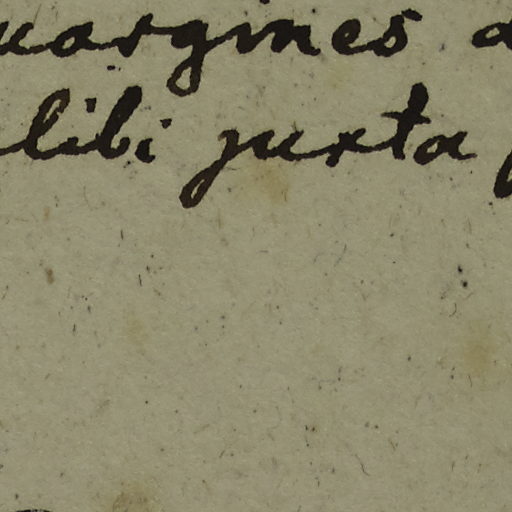 margines
libi juxta